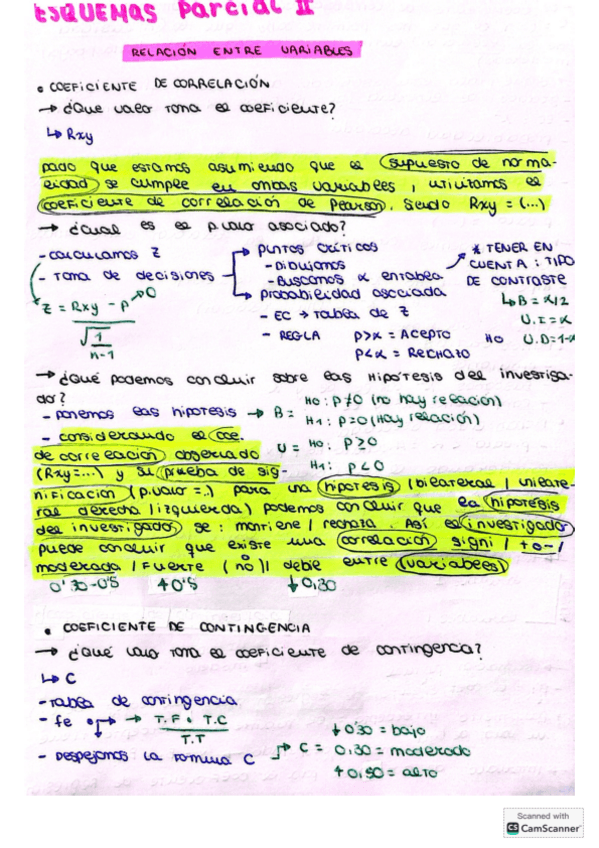 ESQUEMAS Parcial II
RELACIÓN ENTRE VARIABLES
• COEFICIENTE DE CORRELACIÓN
→ ¿Que valor toma el coeficiente?
↳ Rxy
Dado que estamos asumiendo que el supuesto de norma-
lidad se cumple en ambas variables, utilizamos el
coeficiente de correlación de Pearson. Siendo Rxy = (...)
→ ¿Cual es el p.valor asociado?
- calculamos Z
- Toma de decisiones
Z = Rxy - p → 0
√ 1
n-1
→ Puntos críticos
- Dibujamos
- Buscamos α en tabla
→ Probabilidad asociada
- EC → tabla de Z
- REGLA P>α = Acepto Ho
P<α = Rechazo
* TENER EN
CUENTA: TIPO
DE CONTRASTE
↳ B = α/2
U.I = α
U.D = 1-α
→ ¿Qué podemos concluir sobre las hipótesis del investiga-
dor?
- ponemos las hipotesis → B = Ho: P≠0 (no hay relación)
H1: P=0 (Hay relación)
U = Ho: P≥0
H1: P<0
- considerando el coe.
de correlación observado
(Rxy=...) y su prueba de sig-
nificación (p.valor =.) para una hipotesis (bilateral / unilate-
ral derecha / izquierda) podemos concluir que la hipotesis
del investigador se: mantiene / rechaza. Así el investigador
puede concluir que existe una correlación signi / + o - /
moderada / Fuerte (no) / debil entre (variables)
0'30-0'5 ↑0'5 ↓0,30
• COEFICIENTE DE CONTINGENCIA
→ ¿Qué valor toma el coeficiente de contingencia?
↳ C
- Tabla de contingencia
- fe → T.F • T.C
T.T
- Despejamos la formula C → C =
↓0'30 = bajo
0,30 = moderado
↑0,50 = alto
Scanned with
CS CamScanner